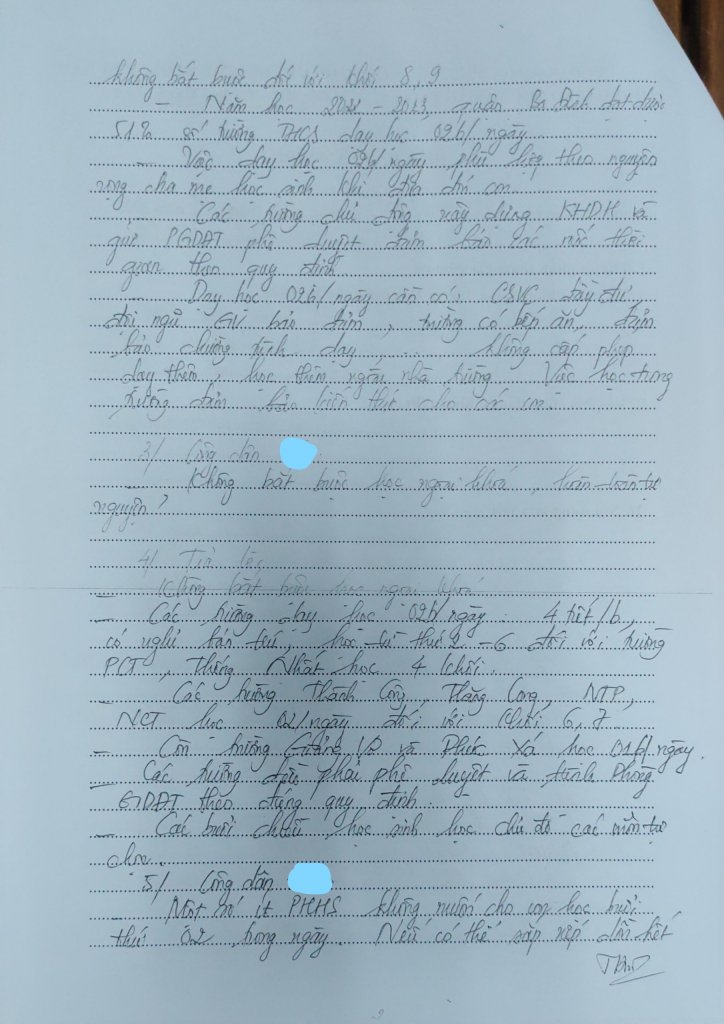 không bắt buộc đối với khối 8, 9
- Năm học 2022 - 2023, quận Ba Đình đạt được
51% số trường THCS dạy học 02b/ngày.
- Việc dạy học 02b/ngày phù hợp theo nguyện
vọng cha mẹ học sinh khi đưa đón con.
- Các trường chủ động xây dựng KHDH và
gửi PGDĐT phê duyệt đảm bảo các mốc thời
gian theo quy định
- Dạy học 02b/ngày cần có: CSVC đầy đủ
đội ngũ GV bảo đảm, trường có bếp ăn, đảm
bảo chương trình dạy, ... không cấp phép
dạy thêm, học thêm ngoài nhà trường. Việc học trong
trường đảm bảo kiến thức cho các em.
3/ Công dân
- Không bắt buộc học ngoại khoá, hoàn toàn tự
nguyện?
4/ Trả lời
- Không bắt buộc học ngoại khoá
- Các trường dạy học 02b/ngày: 4 tiết/b,
có nghỉ bán trú, học từ thứ 2 - 6 đối với trường
PCT, Thống Nhất học 4 khối.
- Các trường Thành Công, Thăng Long, NTP,
NCT học 02/ngày đối với khối 6, 7
- Còn trường Giảng Võ và Phúc Xá học 01b/ngày.
- Các trường đều phải phê duyệt và trình Phòng
GDĐT theo đúng quy định.
- Các buổi chiều, học sinh học chủ đề các môn tự
chọn.
5/ Công dân
- Một số ít PHHS không muốn cho con học buổi
thứ 02 trong ngày. Nếu có thể sắp xếp dồn hết